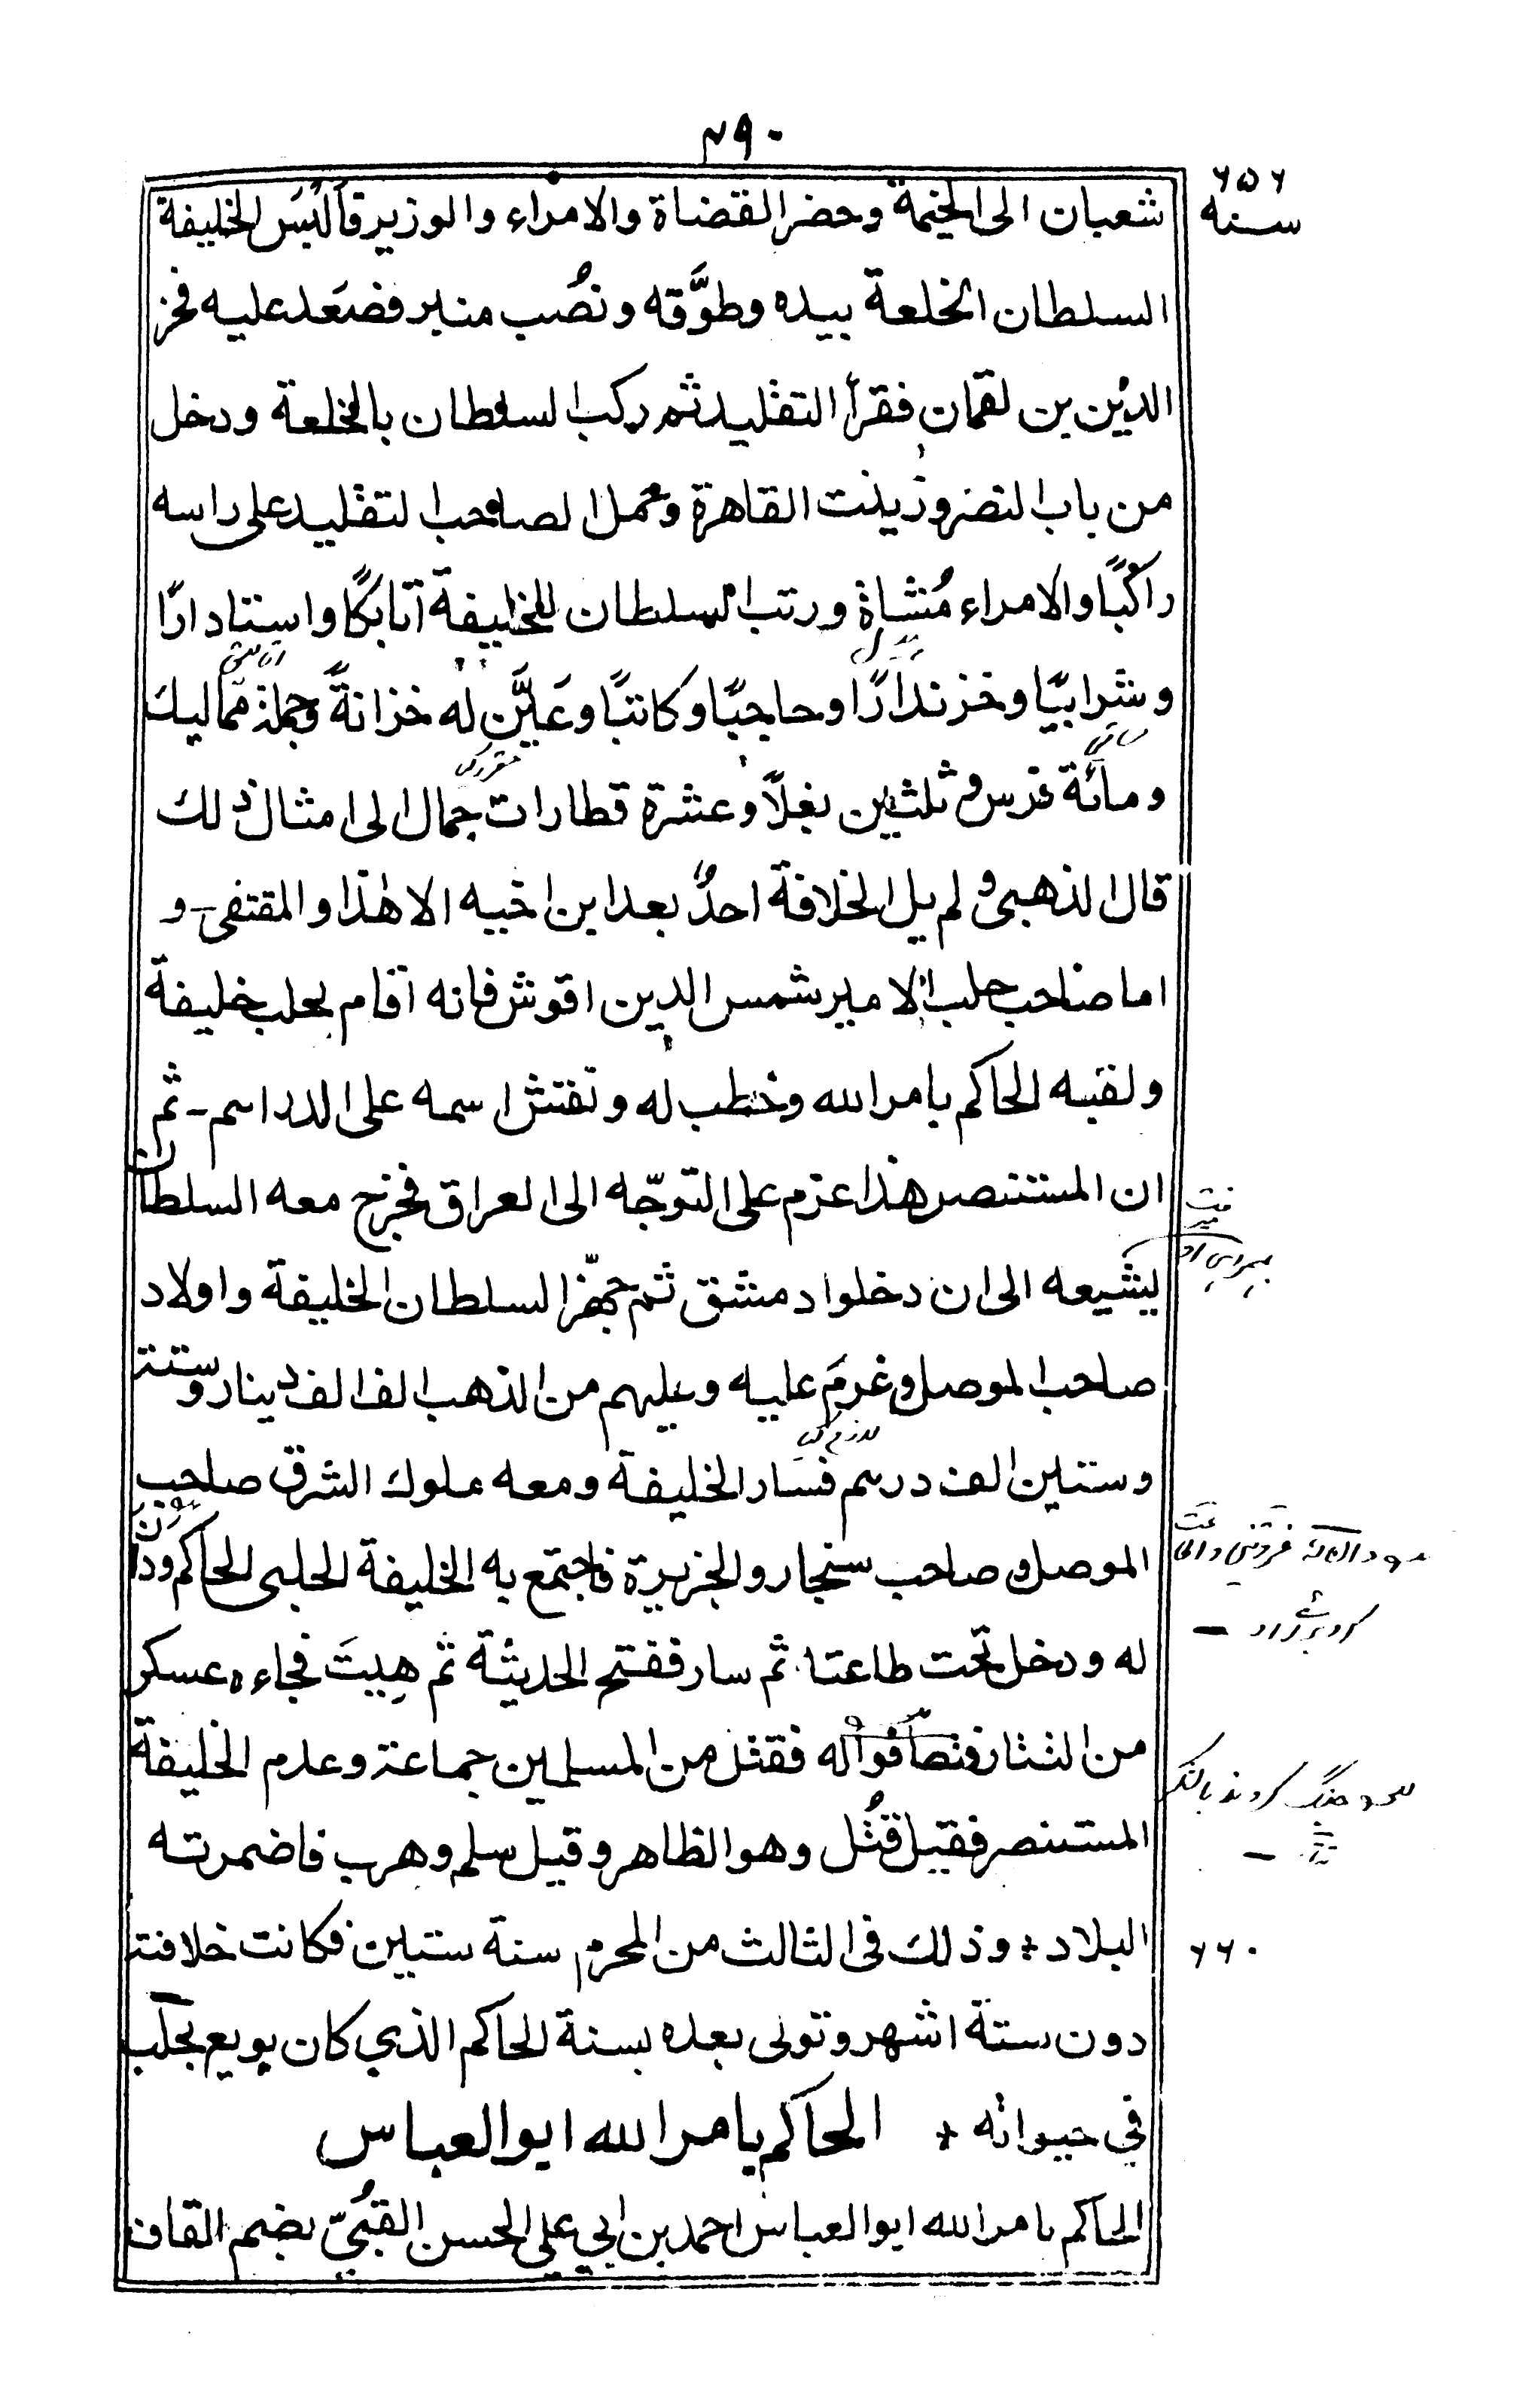 ۴۹۰
۶۵۶
سنه
شعبان الى الخيمة وحضر القضاة والامراء والوزير فاَلْبَسَ الخليفة
السلطان الخلعة بيده وطوَّقه ونصُب منبر فصَعَد عليه فخر
الدين بن لقمان فقرأ التقليد ثم ركب السلطان بالخلعة ودخل
من باب النصر وزينت القاهرة وحمل الصاحب التقليد على راسه
راكبًا والامراء مُشاة ورتب السلطان للخليفة آتابكًا واستادارًا
وشرابيًا وخزندارًا وحاجبًا وكاتبًا وعَيَّن له خزانةً وجملة مماليك
ومائة فرس وثلثين بغلًا وعشرة قطارات جمال الى امثال ذلك
قال الذهبى ولم يل الخلافة احدٌ بعد ابن اخيه الا هذا والمقتفى - و
اما صاحب حلب الامير شمس الدين اقوش فانه اقام بحلب خليفة
ولقبه الحاكم بامر الله وخطب له ونقش اسمه على الدراهم - ثم
ان المستنصر هذا عزم على التوجّه الى العراق فخرج معه السلطان
ليشيعه الى ان دخلوا دمشق ثم جهّز السلطان الخليفة واولاد
صاحب الموصل وغرم عليه وعليهم من الذهب الف الف دينار وستة
وستين الف درهم فسار الخليفة ومعه ملوك الشرق صاحب
الموصل وصاحب سنجار والجزيرة فاجتمع به الخليفة الحلبى الحاكم ودان
له ودخل تحت طاعته ثم سار ففتح الحديثة ثم هِيتَ فجاءه عسكر
من التتار فتصافوا له فقتل من المسلمين جماعة وعدم الخليفة
المستنصر فقيل قُتل وهو الظاهر وقيل سلم وهرب فاضمرته
البلاد * وذلك فى الثالث من المحرم سنة ستين فكانت خلافته
۶۶۰
دون ستة اشهر وتولى بعده بسنة الحاكم الذي كان بويع بحلب
في حيواته * الحاكم بامر الله ابو العباس
الحاكم بامر الله ابو العباس احمد بن ابي علي الحسن القُبّيّ بضم القاف